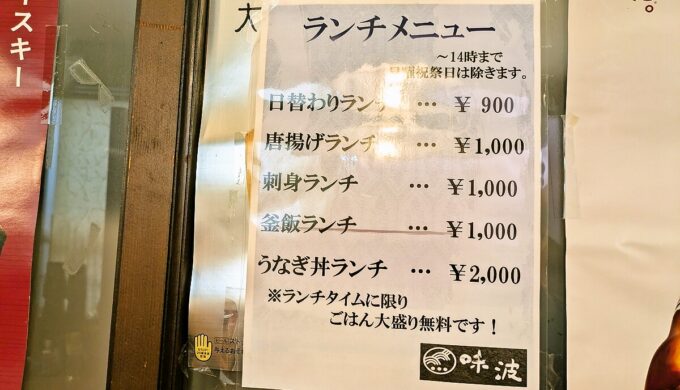 スキー
大
ランチメニュー
～14時まで
日曜祝祭日は除きます。
日替わりランチ … ￥900
唐揚げランチ … ￥1,000
刺身ランチ … ￥1,000
釜飯ランチ … ￥1,000
うなぎ丼ランチ … ￥2,000
※ランチタイムに限り
ごはん大盛り無料です！
味波